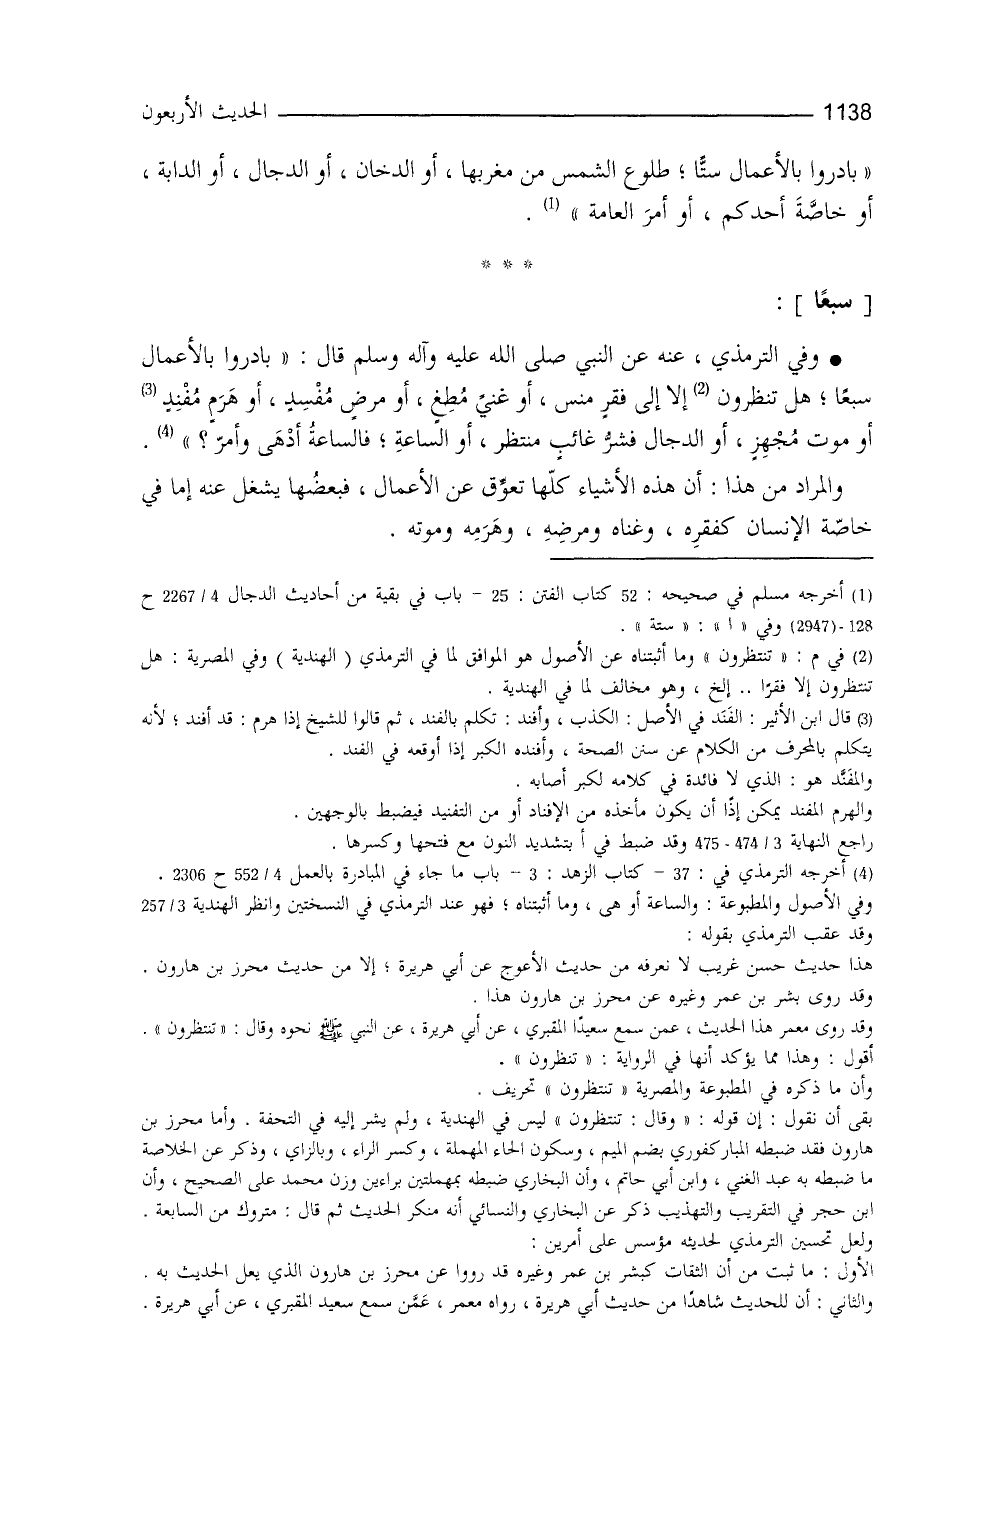 1138 الحديث الأربعون
« بادروا بالأعمال ستًّا ؛ طلوع الشمس من مغربها ، أو الدخان ، أو الدجال ، أو الدابة ،
أو خاصَّةَ أحدكم ، أو أمرَ العامة » (1) .
* * *
[ سبعًا ] :
● وفي الترمذي ، عنه عن النبي صلى الله عليه وآله وسلم قال : « بادروا بالأعمال
سبعًا ؛ هل تنظرون (2) إلا إلى فقرٍ منس ، أو غنيً مُطِغٍ ، أو مرضٍ مُفْسِدٍ ، أو هَرَمٍ مُفْنِدٍ (3)
أو موت مُجْهِزٍ ، أو الدجال فشرُّ غائبٍ منتظر ، أو الساعةِ ؛ فالساعةُ أدْهَى وأمرّ ؟ » (4) .
والمراد من هذا : أن هذه الأشياء كلّها تعوِّق عن الأعمال ، فبعضُها يشغل عنه إما في
خاصّة الإنسان كفقرِه ، وغناه ومرضِهِ ، وهَرَمِه وموته .
(1) أخرجه مسلم في صحيحه : 52 كتاب الفتن : 25 - باب في بقية من أحاديث الدجال 4 / 2267 ح
128 -(2947) وفي « ا » : « ستة » .
(2) في م : « تنتظرون » وما أثبتناه عن الأصول هو الموافق لما في الترمذي ( الهندية ) وفي المصرية : هل
تنتظرون إلا فقرًا .. إلخ ، وهو مخالف لما في الهندية .
(3) قال ابن الأثير : الفَنَد في الأصل : الكذب ، وأفند : تكلم بالفند ، ثم قالوا للشيخ إذا هرم : قد أفند ؛ لأنه
يتكلم بالمحرف من الكلام عن سنن الصحة ، وأفنده الكبر إذا أوقعه في الفند .
والمفَنَّد هو : الذي لا فائدة في كلامه لكبر أصابه .
والهرم المفند يمكن إذًا أن يكون مأخذه من الإفناد أو من التفنيد فيضبط بالوجهين .
راجع النهاية 3 / 474 - 475 وقد ضبط في أ بتشديد النون مع فتحها وكسرها .
(4) أخرجه الترمذي في : 37 - كتاب الزهد : 3 - باب ما جاء في المبادرة بالعمل 4 / 552 ح 2306 .
وفي الأصول والمطبوعة : والساعة أو هى ، وما أثبتناه ؛ فهو عند الترمذي في النسختين وانظر الهندية 3 / 257
وقد عقب الترمذي بقوله :
هذا حديث حسن غريب لا نعرفه من حديث الأعوج عن أبي هريرة ؛ إلا من حديث محرز بن هارون .
وقد روى بشر بن عمر وغيره عن محرز بن هارون هذا .
وقد روى معمر هذا الحديث ، عمن سمع سعيدًا المقبري ، عن أبي هريرة ، عن النبي ﷺ نحوه وقال : « تنتظرون » .
أقول : وهذا مما يؤكد أنها في الرواية : « تنظرون » .
وأن ما ذكره في المطبوعة والمصرية « تنتظرون » تحريف .
بقى أن نقول : إن قوله : « وقال : تنتظرون » ليس في الهندية ، ولم يشر إليه في التحفة . وأما محرز بن
هارون فقد ضبطه المباركفوري بضم الميم ، وسكون الحاء المهملة ، وكسر الراء ، وبالزاي ، وذكر عن الخلاصة
ما ضبطه به عبد الغني ، وابن أبي حاتم ، وأن البخاري ضبطه بمهملتين براءين وزن محمد على الصحيح ، وأن
ابن حجر في التقريب والتهذيب ذكر عن البخاري والنسائي أنه منكر الحديث ثم قال : متروك من السابعة .
ولعل تحسين الترمذي لحديثه مؤسس على أمرين :
الأول : ما ثبت من أن الثقات كبشر بن عمر وغيره قد رووا عن محرز بن هارون الذي يعل الحديث به .
والثاني : أن للحديث شاهدًا من حديث أبي هريرة ، رواه معمر ، عَمَّن سمع سعيد المقبري ، عن أبي هريرة .